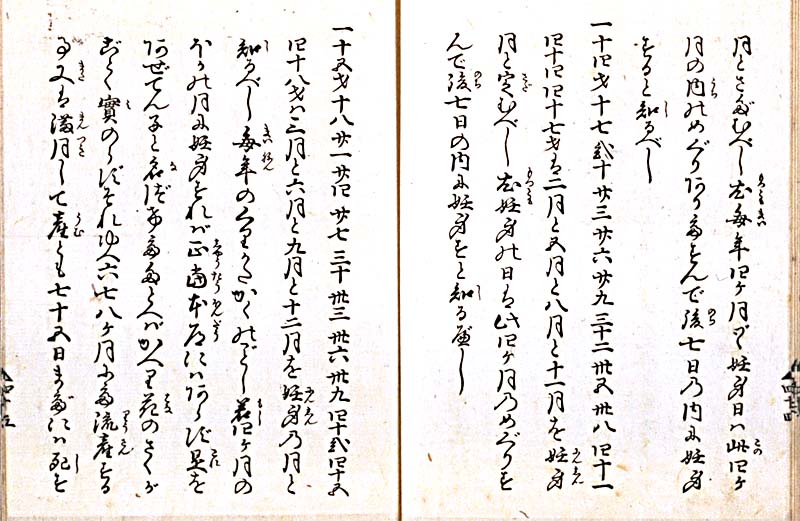 月とさだむべし尤毎年四ケ月づゝ妊身日は此四ケ
月の内のめぐりありてすんで後七日の内に妊身
すると知るべし
一十四才十七 弐十 廿三 廿六 廿九 三十二 卅五 卅八 四十一
四十四 四十七才は二月と五月と八月と十一月を妊身
月と定むべし尤妊身の日は此四ケ月のめぐりす
んで後七日の内に妊身すと知る
一十五才十八 廿一 廿四 廿七 三十 卅三 卅六 卅九 四十弐 四十五
四十八才は三月と六月と九月と十二月を妊身の月と
知るべし毎年のくりかたかくのごとし若四ケ月の
ほかの月に妊身すれば正当本道にはあらず是を
あぜでん子と名づくたとへばかへり花のさくが
ごとく實のらずそれゆへ六七八ケ月にて流産する
又は満月して産とも七十五日までには死す